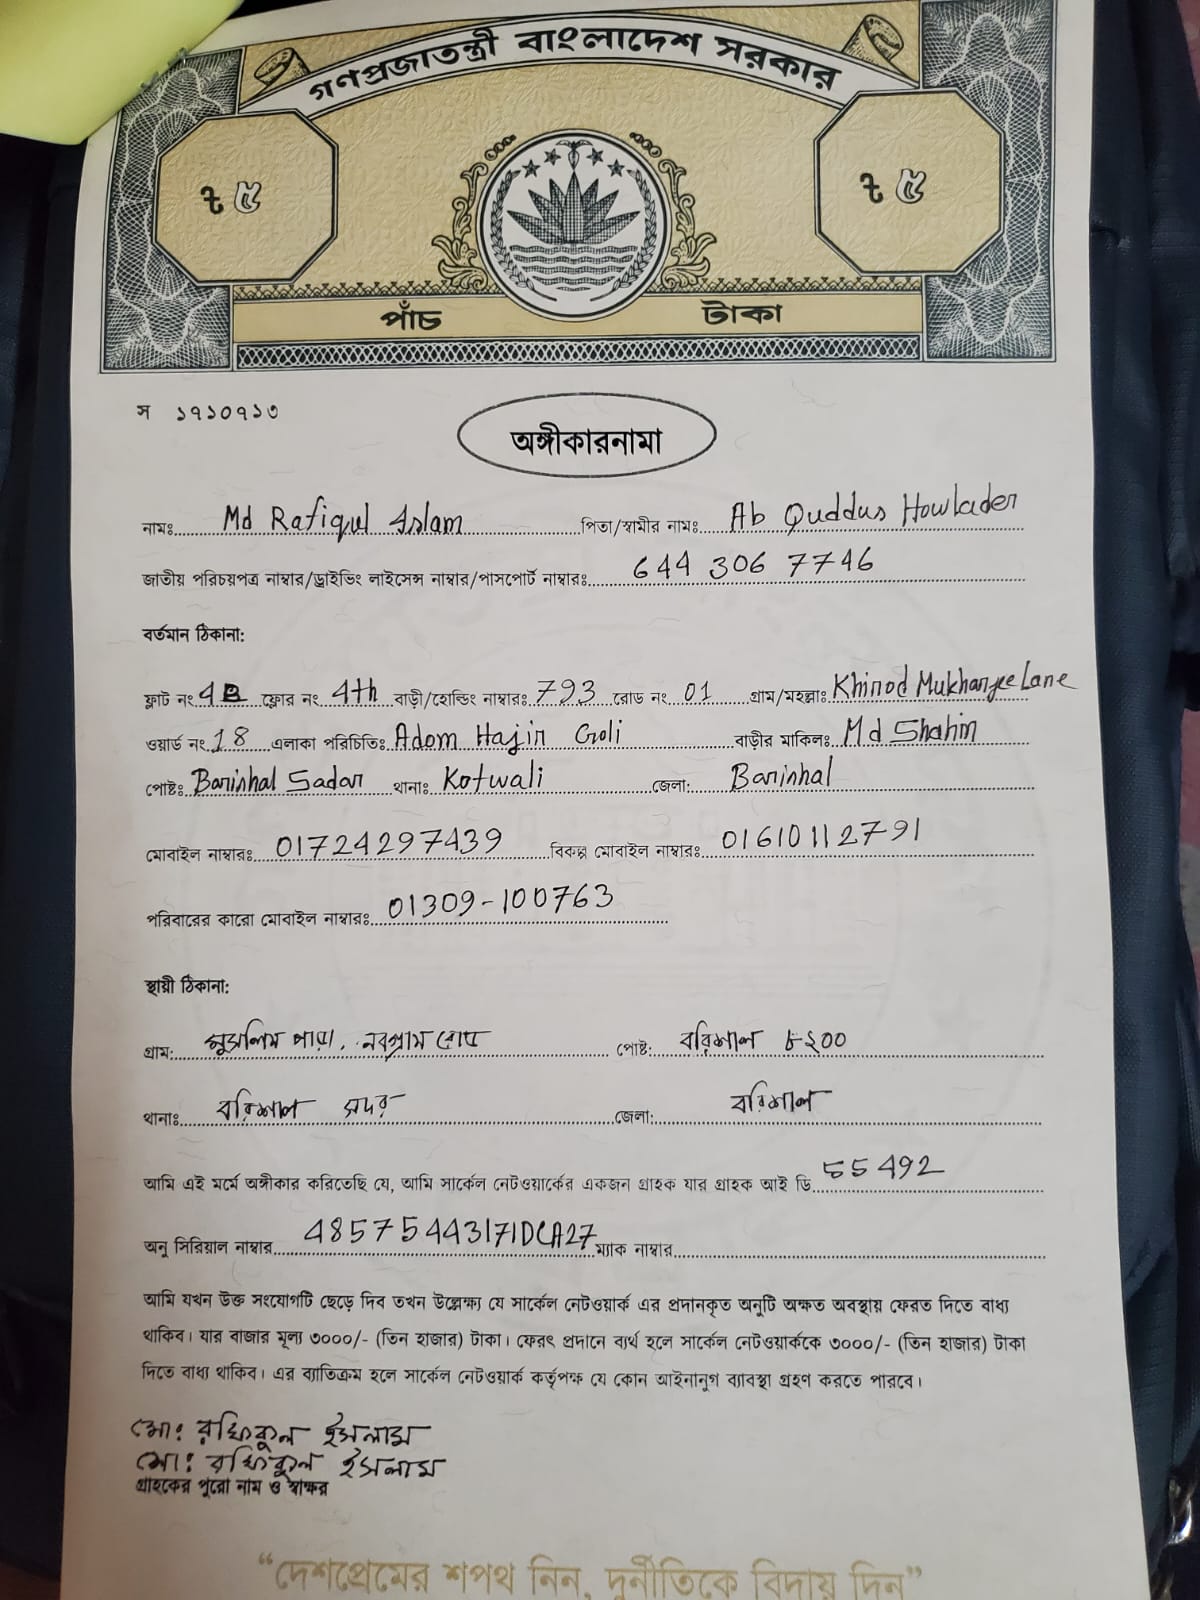 গণপ্রজাতন্ত্রী বাংলাদেশ সরকার
৳ ৫ ৳ ৫
পাঁচ টাকা
স ১৭১০৭১৩
অঙ্গীকারনামা
নামঃ Md Rafiqul Islam পিতা/স্বামীর নামঃ Ab Quddus Howlader
জাতীয় পরিচয়পত্র নাম্বার/ড্রাইভিং লাইসেন্স নাম্বার/পাসপোর্ট নাম্বারঃ 644 306 7746
বর্তমান ঠিকানা:
ফ্লাট নং 4B ফ্লোর নং 4th বাড়ী/হোল্ডিং নাম্বারঃ 793 রোড নং 01 গ্রাম/মহল্লাঃ Khirod Mukharjee Lane
ওয়ার্ড নং 18 এলাকা পরিচিতিঃ Adom Hajir Goli বাড়ীর মালিকঃ Md Shahin
পোষ্টঃ Barishal Sadar থানাঃ Kotwali জেলা: Barishal
মোবাইল নাম্বারঃ 01724297439 বিকল্প মোবাইল নাম্বারঃ 01610112791
পরিবারের কারো মোবাইল নাম্বারঃ 01309-100763
স্থায়ী ঠিকানা:
গ্রাম: মুসলিম পারা, নবগ্রাম রোড পোষ্ট: বরিশাল ৮২০০
থানাঃ বরিশাল সদর জেলা: বরিশাল
আমি এই মর্মে অঙ্গীকার করিতেছি যে, আমি সার্কেল নেটওয়ার্কের একজন গ্রাহক যার গ্রাহক আই ডি 55492
অনু সিরিয়াল নাম্বার 48575443171DCA27 ম্যাক নাম্বার
আমি যখন উক্ত সংযোগটি ছেড়ে দিব তখন উল্লেক্ষ্য যে সার্কেল নেটওয়ার্ক এর প্রদানকৃত অনুটি অক্ষত অবস্থায় ফেরত দিতে বাধ্য
থাকিব। যার বাজার মূল্য ৩০০০/- (তিন হাজার) টাকা। ফেরৎ প্রদানে ব্যর্থ হলে সার্কেল নেটওয়ার্ককে ৩০০০/- (তিন হাজার) টাকা
দিতে বাধ্য থাকিব। এর ব্যাতিক্রম হলে সার্কেল নেটওয়ার্ক কর্তৃপক্ষ যে কোন আইনানুগ ব্যাবস্থা গ্রহণ করতে পারবে।
মো: রফিকুল ইসলাম
মো: রফিকুল ইসলাম
গ্রাহকের পুরো নাম ও স্বাক্ষর
“দেশপ্রেমের শপথ নিন, দুর্নীতিকে বিদায় দিন”